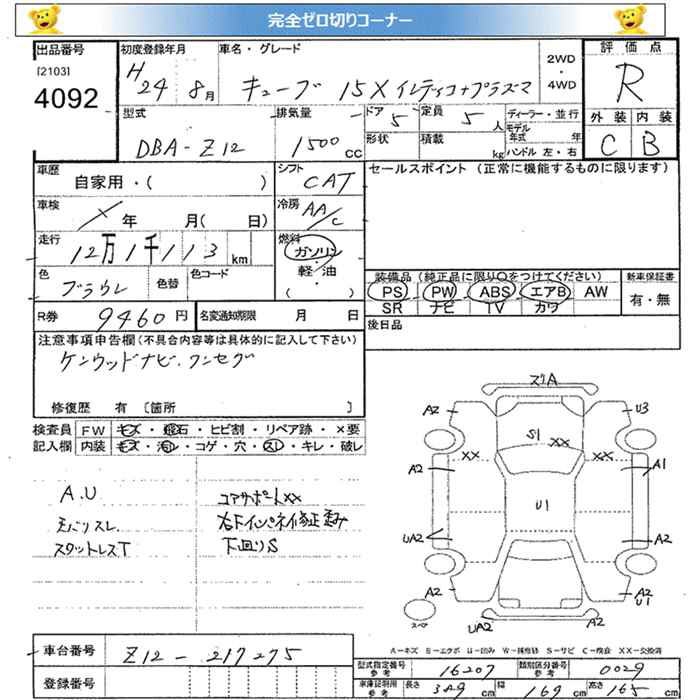 完全ゼロ切りコーナー
出品番号 [2103] 4092
初度登録年月 H24年8月
車名・グレード キューブ 15X インディゴ+プラズマ
2WD・4WD
評価点 R
外装 C 内装 B
型式 DBA-Z12
排気量 1500cc
ドア 5 定員 5人
形状 積載 kg
ディーラー・並行
モデル年式 年
ハンドル 左・右
車歴 自家用・( )
シフト CAT
セールスポイント (正常に機能するものに限ります)
車検 × 年 月( 日)
冷房 AA/C
走行 12万1千113km
燃料 ガソリン・軽・油 ( )
色 ブラウン 色替 色コード
装備品 (純正品に限り○をつけてください)
PS PW ABS エアB AW
SR ナビ TV カワ
新車保証書 有・無
R券 9460円
名変通知期限 月 日
後日品
注意事項申告欄 (不具合内容等は具体的に記入して下さい)
ケンウッドナビ・ワンセグ
修復歴 有 [箇所 ]
検査員記入欄
FW キズ・飛石・ヒビ割・リペア跡・×要
内装 キズ・汚れ・コゲ・穴・スレ・キレ・破レ
A.U
モバリスレ
スタットレスT
コアサポートXX
右下インパネイ修正歪み
下廻りS
ズリA
A2 U3
S1 XX XX
A2 A1
U1
UA2 A2
A2 A2 U1
スペア UA2 A2
A-キズ E-エクボ U-凹み W-補修跡 S-サビ C-腐食 XX-交換済
車台番号 Z12-217275
登録番号
型式指定番号 参考 16207 類別区分番号 参考 0029
車庫証明用 参考 長さ 389cm 幅 169cm 高さ 165cm